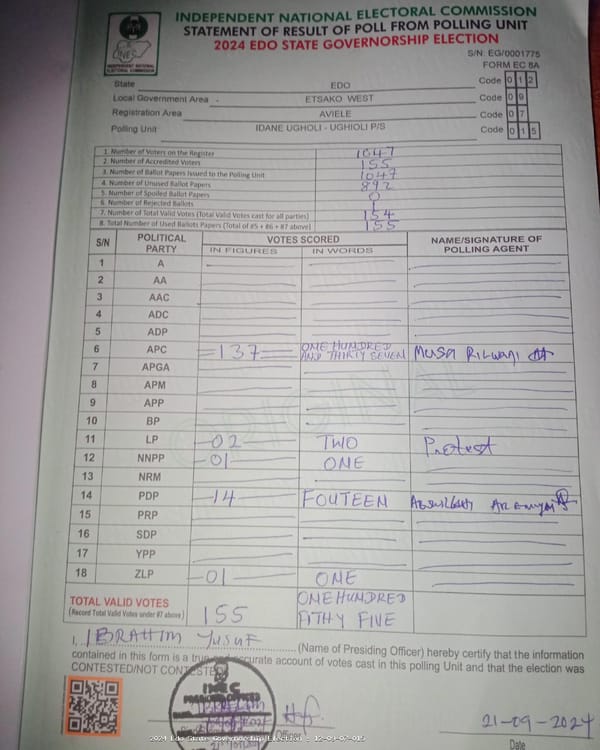 INDEPENDENT NATIONAL ELECTORAL COMMISSION
STATEMENT OF RESULT OF POLL FROM POLLING UNIT
2024 EDO STATE GOVERNORSHIP ELECTION
INDEPENDENT NATIONAL
ELECTORAL COMMISSION
S/N: EG/0001775
FORM EC 8A
State EDO Code 0 1 2
Local Government Area - ETSAKO WEST Code 0 9
Registration Area AVIELE Code 0 7
Polling Unit IDANE UGHOLI - UGHIOLI P/S Code 0 1 5
1. Number of Voters on the Register 1047
2. Number of Accredited Voters 155
3. Number of Ballot Papers Issued to the Polling Unit 1047
4. Number of Unused Ballot Papers 892
5. Number of Spoiled Ballot Papers 0
6. Number of Rejected Ballots 1
7. Number of Total Valid Votes (Total Valid Votes cast for all parties) 154
8. Total Number of Used Ballots Papers (Total of #5 + #6 + #7 above) 155
S/N POLITICAL PARTY VOTES SCORED NAME/SIGNATURE OF POLLING AGENT
IN FIGURES IN WORDS
1 A
2 AA
3 AAC
4 ADC
5 ADP
6 APC 137 ONE HUNDRED AND THIRTY SEVEN MUSA RILWAN
7 APGA
8 APM
9 APP
10 BP
11 LP 02 TWO Protest
12 NNPP 01 ONE
13 NRM
14 PDP 14 FOUTEEN
15 PRP
16 SDP
17 YPP
18 ZLP 01 ONE
TOTAL VALID VOTES 155 ONE HUNDRED
(Record Total Valid Votes under #7 above) FITHY FIVE
I, IBRAHIM YUSUF (Name of Presiding Officer) hereby certify that the information
contained in this form is a true and accurate account of votes cast in this polling Unit and that the election was
CONTESTED/NOT CONTESTED
INEC
PRESIDING OFFICER
21-09-2024
Date
2024 Edo State Governorship Election - 12-09-07-015